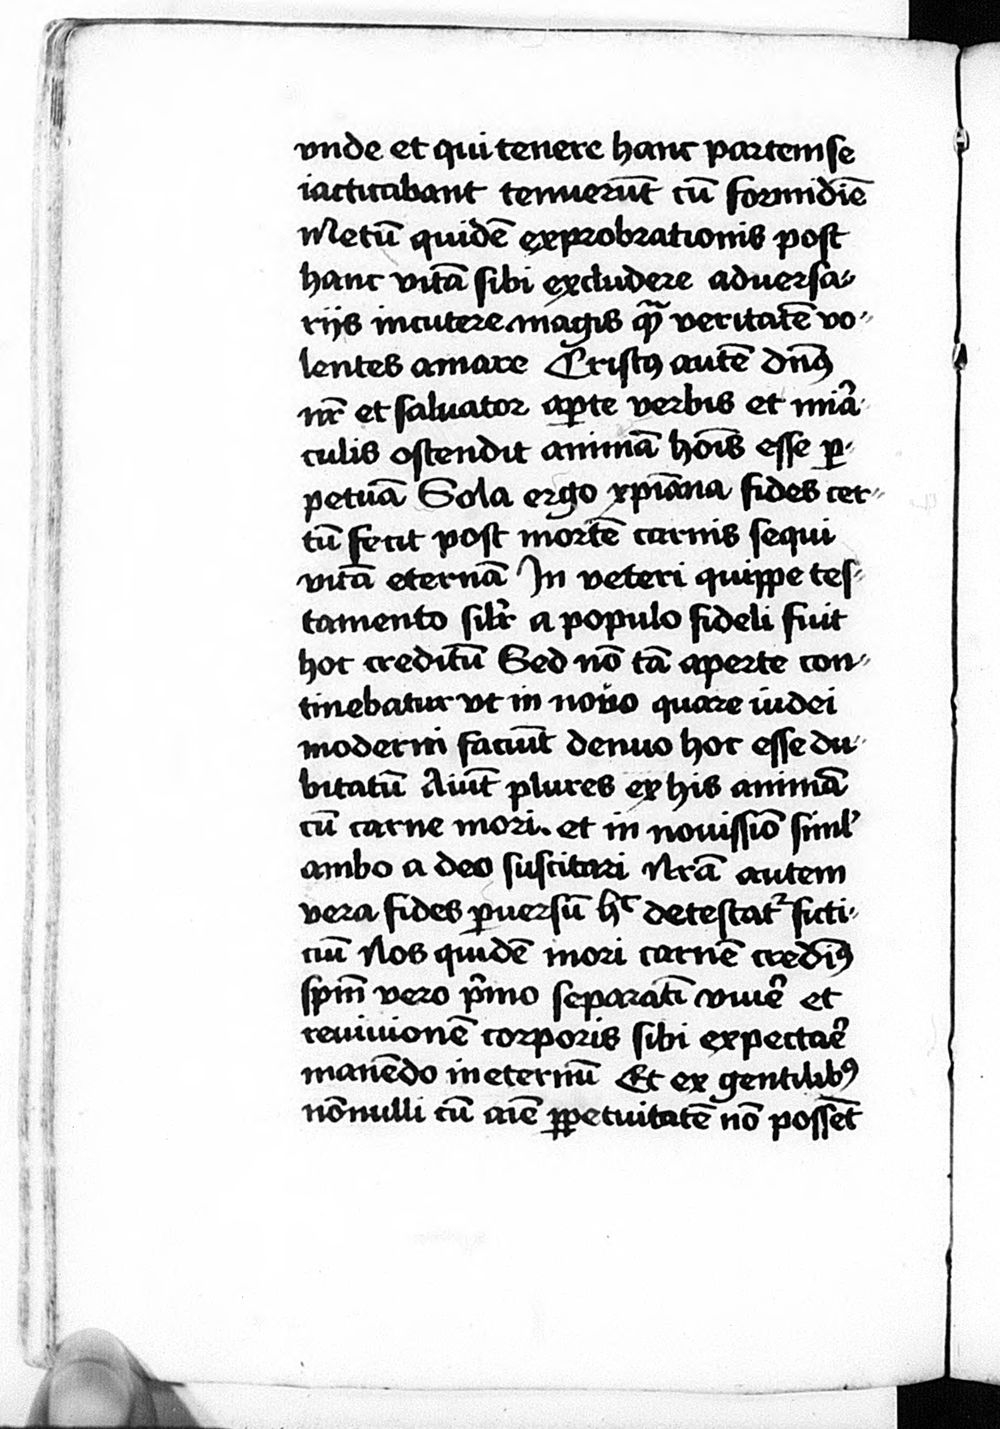 vnde et qui tenere hanc partem se
iactitabant tenuerūt cū formidīe
Metū quidē exprobrationis post
hanc vitā sibi excludere aduersa⸗
rijs incutere magis qͣ̄ veritatē vo⸗
lentes amare Cristꝯ autē dn̄ꝯ
nr̄ et saluator aꝑte verbis et mirͣa⸗
culis ostendit animā hoīs esse ꝑ⸗
petuā Sola ergo xpiāna fides cer⸗
tū fecit post mortē carnis sequi
vitā eternā In veteri quippe tes⸗
tamento silr̄ a populo fideli fuit
hoc creditū Sed nō tā aperte con⸗
tinebatur vt in nouo quare iudei
moderni faciūt denuo hoc esse du⸗
bitatū Aiūt plures ex his animā
cū carne mori. et in nouissīo siml̓
ambo a deo suscitari Nr̄ā autem
vera fides ꝑuersū hͨ detestatᷣ ficti⸗
ciū Nos quidē mori carnē credimꝯ
spm̄ vero pͥmo separati viuer̄ et
reuiuionē corporis sibi expectar̄
manēdo in eternū Et ex gentilibꝯ
nōnulli cū aīe ꝑpetuitatē nō possēt